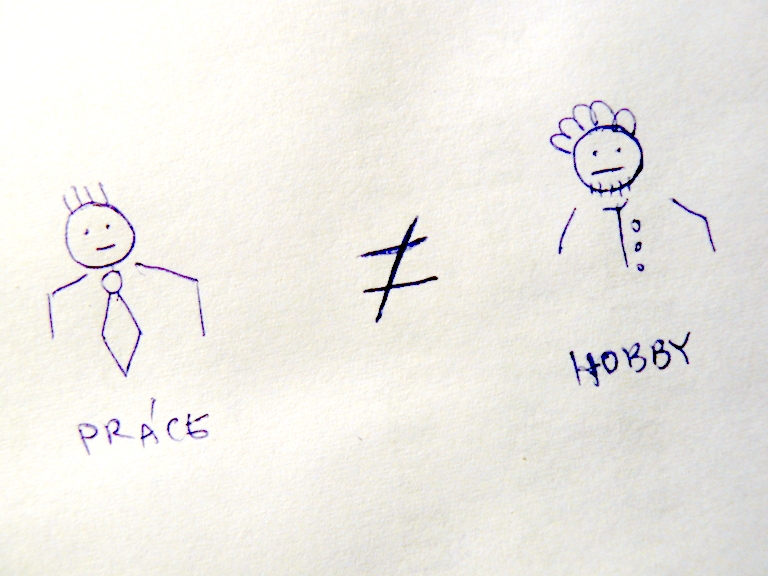 PRÁCE
≠
HOBBY